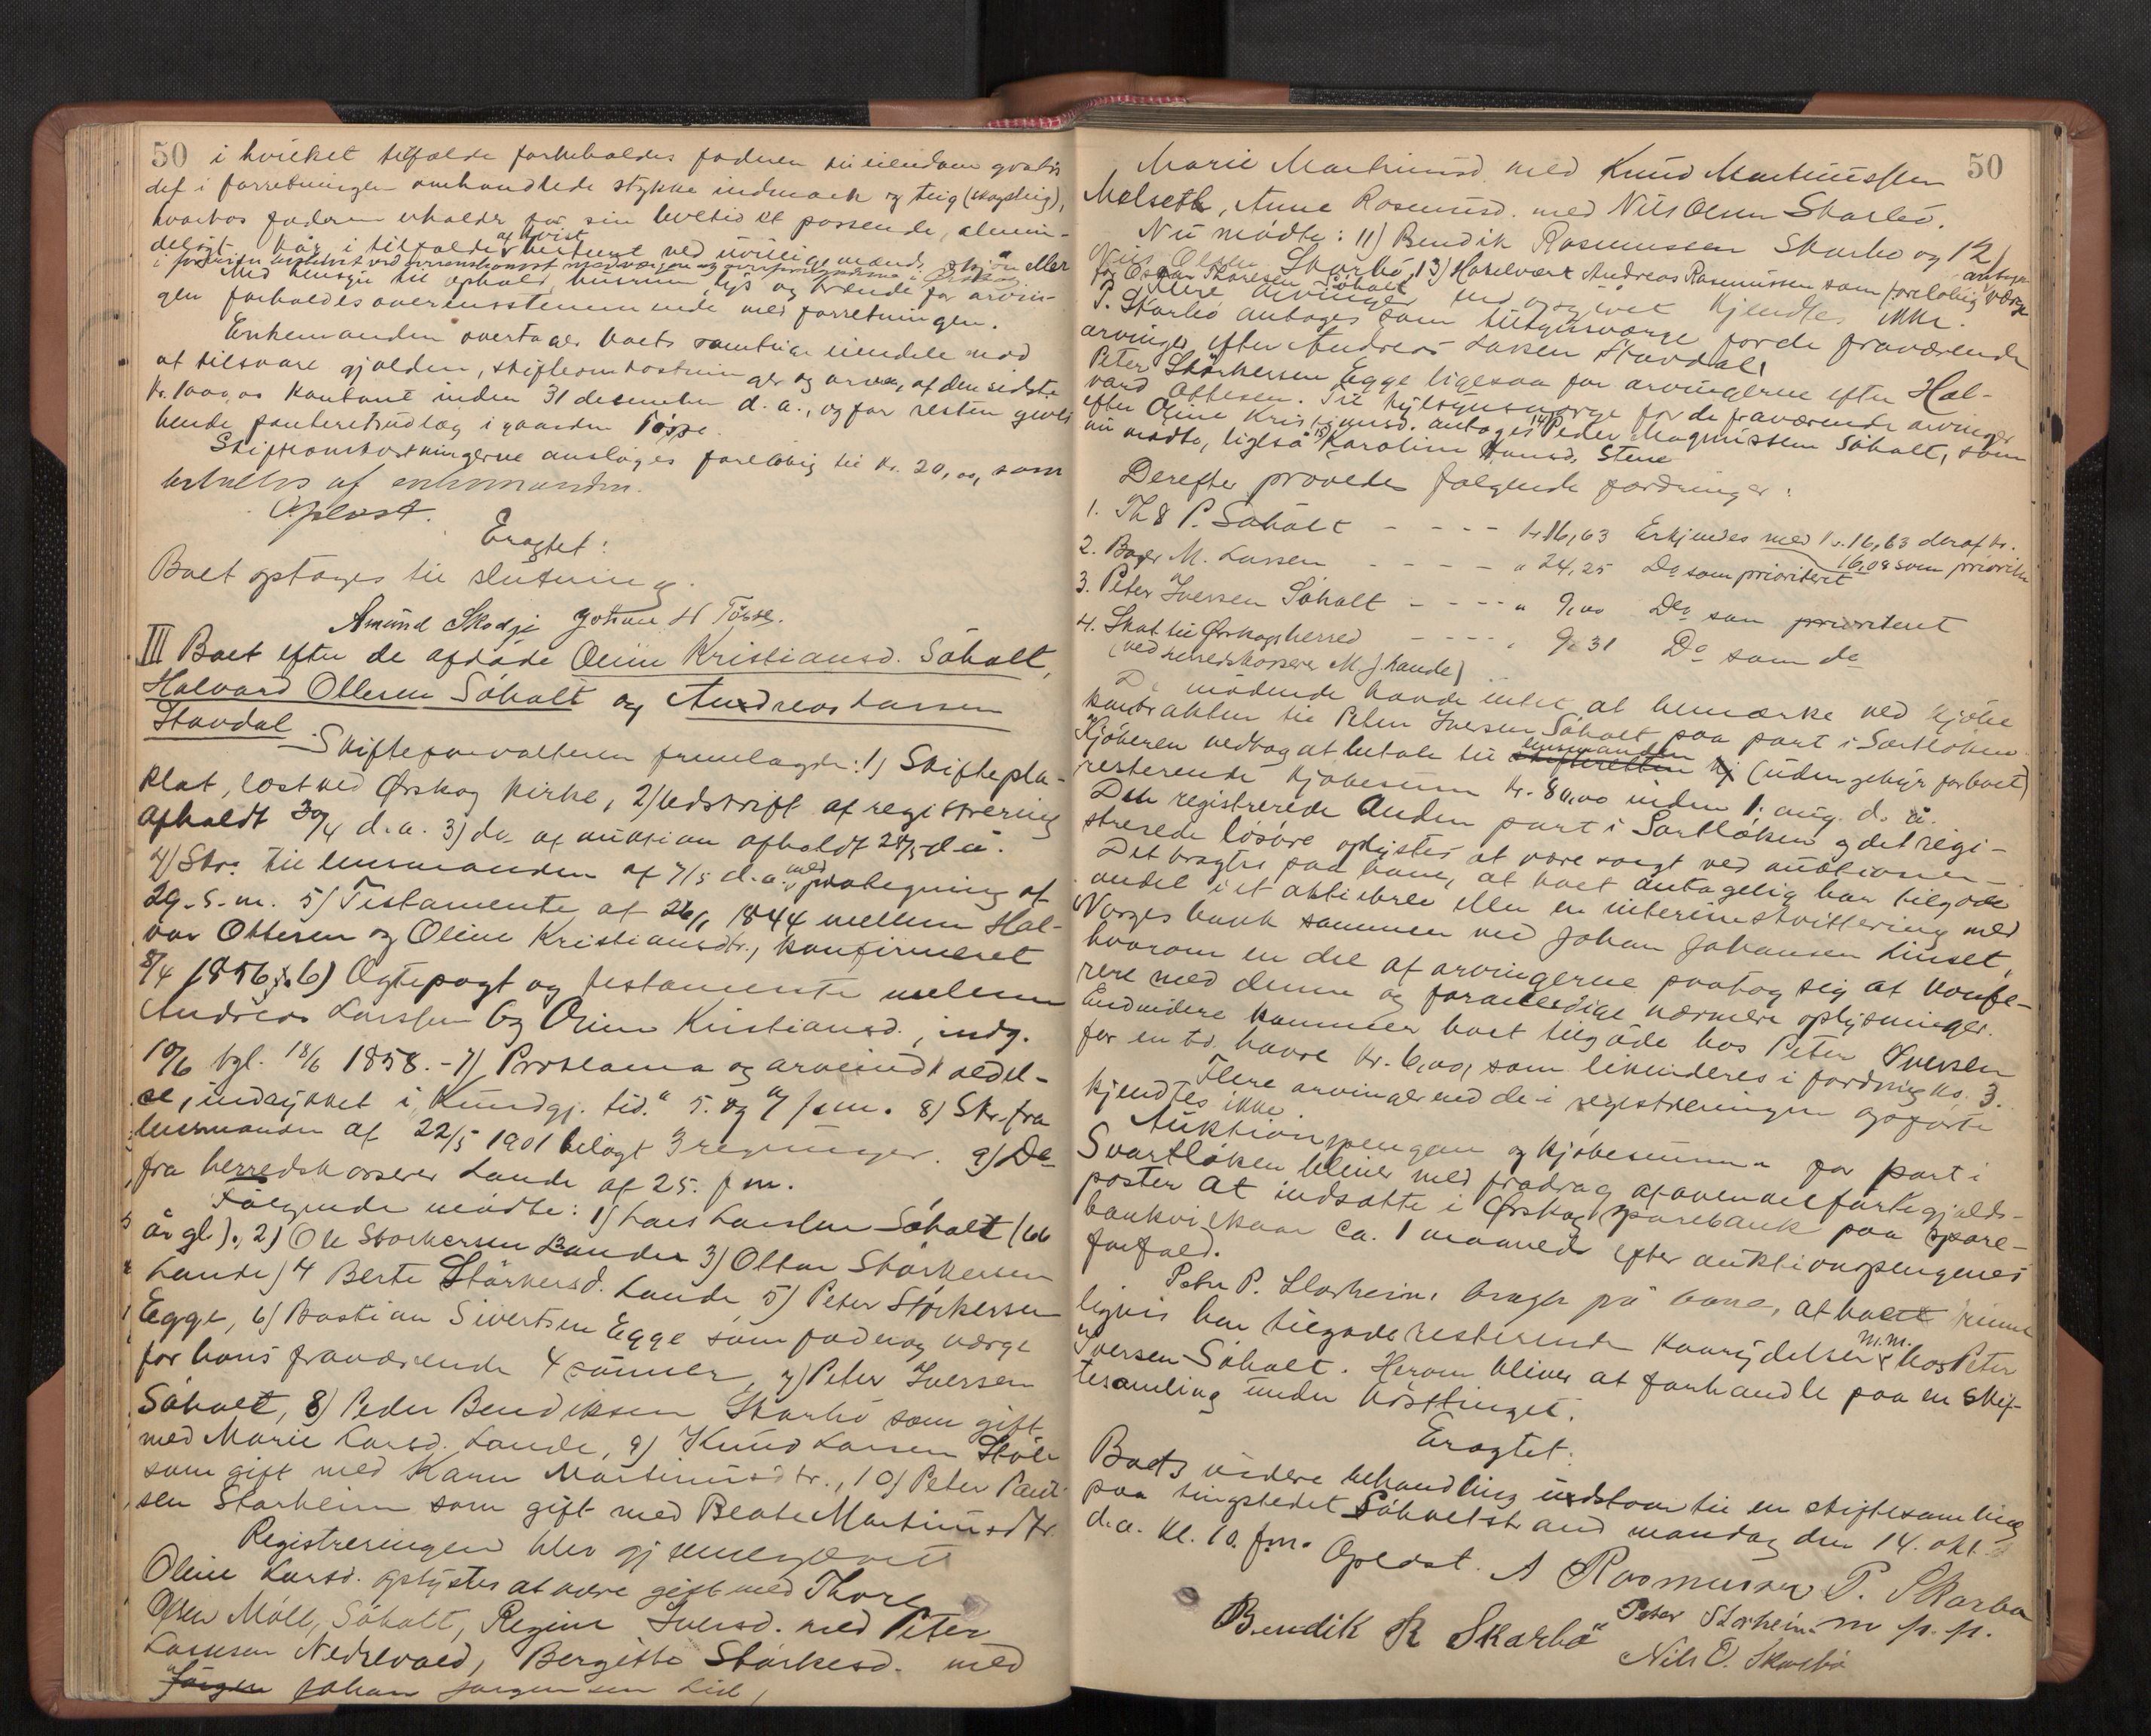 50 i hvilket tilfælde forbeholdes faderen til eiendom gratis
det i forretningen omhandlede stykke indmark og teig (skogteig),
hvorhos faderen erholder for sin levetid et passende, almin-
deligt kår i tilfælde af tvist bestemt ved uvillige mænds skjøn eller
Med hensyn til ophold, husrum, lys og brænde for arvin-
gen forholdes overensstemmende med forretningen.
Enkemanden overtager boets samtlige eiendele mod
at tilsvare gjælden, skifteomkostninger og arven, af den sidste
kr. 1000,00 kontant inden 31 december d. a., og for resten gives
hende panteretsudlæg i gaarden Tøsse.
Skifteomkostningerne ansløges foreløbig til kr. 20,00, som
betaltes af enkemanden.
Oplæst.
Eragtet:
Boet optages til slutning.
Amund Skodje Johan H Tøsse.
III Boet efter de afdøde Oline Kristiansd. Søholt,
Halvard Ottesen Søholt og Andreas Larssen
Stavdal
Skifteforvalteren fremlagde: 1) Skiftepla-
kat, læst ved Ørskog kirke, 2) Udskrift af registrering
afholdt 30/4 d. a. 3) do af auktion afholdt 28/5 d. å.
4) Skr. til lensmanden af 7/5 d. a. med paategning af
29. s. m. 5) Testamente af 26/1 1844 mellem Hal-
var Ottesen og Oline Kristiansdtr., konfirmeret
8/4 1856, 6) Ægtepagt og testamente mellem
Andreas Larssen og Oline Kristiansd., indg.
10/6 tgl. 18/6 1858. - 7) Proklama og arveindkaldel-
se, indrykket i "Kundgj. tid." 5. og 7 f. m. 8) Skr. fra
lensmanden af 22/5 1901 bilagt 3 regninger. 9) Do
fra herredskasserer Lande af 25. f m.
Følgende mødte: 1) Lars Larssen Søholt (66
år gl.), 2) Ole Størkersen Lande 3) Ottar Størkersen
Lande) 4 Berte Størkersd. Lande 5) Peter Størkersen
Egge, 6) Bastian Sivertsen Egge som fader og værge
for hans fraværende 4 sønner, 7) Peter Iversen
Søholt, 8) Peder Bendiksen Skarbø som gift
med Marie Larsd. Lande, 9) Knud Larsen
som gift med Karen Martinusdtr., 10) Peter Paul-
sen Storheim som gift med Beate Martinusdtr.
Registreringen blev gjennemgaaet
Oline Larsd. oplystes at være gift med Thore
Olsen Møll, Søholt, Regine Iversd. med Peter
Larssen Nedrevold, Bergitte Størkesd. med
Jørgen Johan Jørgensen Lid,
50
Marie Martinusd. med Knud Martinussen
Melseth, Anne Rasmusd. med Nils Olsen Skarbø.
Nu mødte: 11) Bendik Rasmussen Skarbø og 12)
Nils Olsen Skarbø, 13) Høielvær Andreas Rasmussen som foreløbig antagen værge
for Oskar Thoresen Søholt
Flere arvinger end opgivet kjendtes ikke.
P. Skarbø antages som tilsynsværge for de fraværende
arvinger efter Andreas Larsen Stavdal,
Peter Størkersen Egge ligesaa for arvingerne efter Hal-
vard Ottesen. Til tilsynsværge for de fraværende arvinger
efter Oline Kristiansd. antages 14) Peder Magnussen Søholt, som
nu mødte, ligeså 15) Karoline Hansd. Stene
Derefter prøvedes følgende fordringer:
1. Ths P. Søholt - - - - kr 16,63 Erkjendes med kr. 16,63 deraf kr.
16,08 som prioritet
2. Bager M. Larssen - - - - " 24,25 Do som prioritert
3. Peter Iversen Søholt - - - - " 9,00 Do som prioritert
4. Skat til Ørskogs herred - - - - " 9,31 Do som do
(ved herredskasserer M. J Lande)
De mødende havde intet at bemærke ved kjøbe
kontrakten til Peter Iversen Søholt paa part i Sartløken.
Kjøberen vedtog at betale til skifteretten lensmanden (uden gebyr for boet)
resterende kjøbesum kr. 80,00 inden 1. aug. d. å.
Den registrerede anden part i Sartløken og det regi-
strerede løsøre oplystes at være solgt ved auktionen.
Det bragtes paa bane, at boet antagelig har tilgode
andel i et aktiebrev eller en interimskvittering med
Norges bank sammen med Johan Johansen Linset,
hvorom en del af arvingerne paatog sig at konfe-
rere med denne og foranledige nærmere oplysninger.
Endvidere kommer boet tilgode hos Peter Iversen
for en td. havre kr. 6,00, som likvideres i fordring No. 3.
Flere arvinger end de i registreringen opførte
kjendtes ikke.
Auktionspengene og kjøbesummen for part i
Svartløken bliver med fradrag af ovenanførte gjælds-
poster at indsætte i Ørskog sparebank paa spare-
bankvilkaar ca. 1 maaned efter auktionspengenes
forfald.
Peter P. Storheim bragte på bane, at boet rime
ligvis har tilgode resterende kaarydelser m.m. hos Peter
Iversen Søholt. Herom bliver at forhandle paa en skif-
tesamling under høsttinget.
Eragtet:
Boets videre behandling udstaar til en skiftesamling
paa tingstedet Søholtstrand mandag den 14. okt.
d. a. kl. 10. fm. Oplæst. A Rasmussen P. Skarbø
Bendik R Skarbø Peter Storheim m. p. p.
Nils O. Skarbø